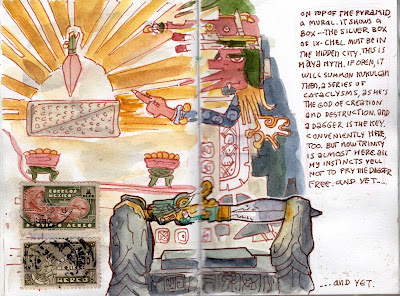 ON TOP OF THE PYRAMID
A MURAL. IT SHOWS A
BOX — THE SILVER BOX
OF IX-CHEL. MUST BE IN
THE HIDDEN CITY. THIS IS
MAYA MYTH. IF OPEN, IT
WILL SUMMON KUKULCAN
THEN, A SERIES OF
CATACLYSMS, AS HE'S
THE GOD OF CREATION
AND DESTRUCTION. AND
A DAGGER IS THE KEY.
CONVENIENTLY HERE,
TOO. BUT NOW TRINITY
IS ALMOST HERE. ALL
MY INSTINCTS YELL
NOT TO PRY THE DAGGER
FREE. AND YET...
...AND YET.
CORREOS
MEXICO
AEREO
AEREO